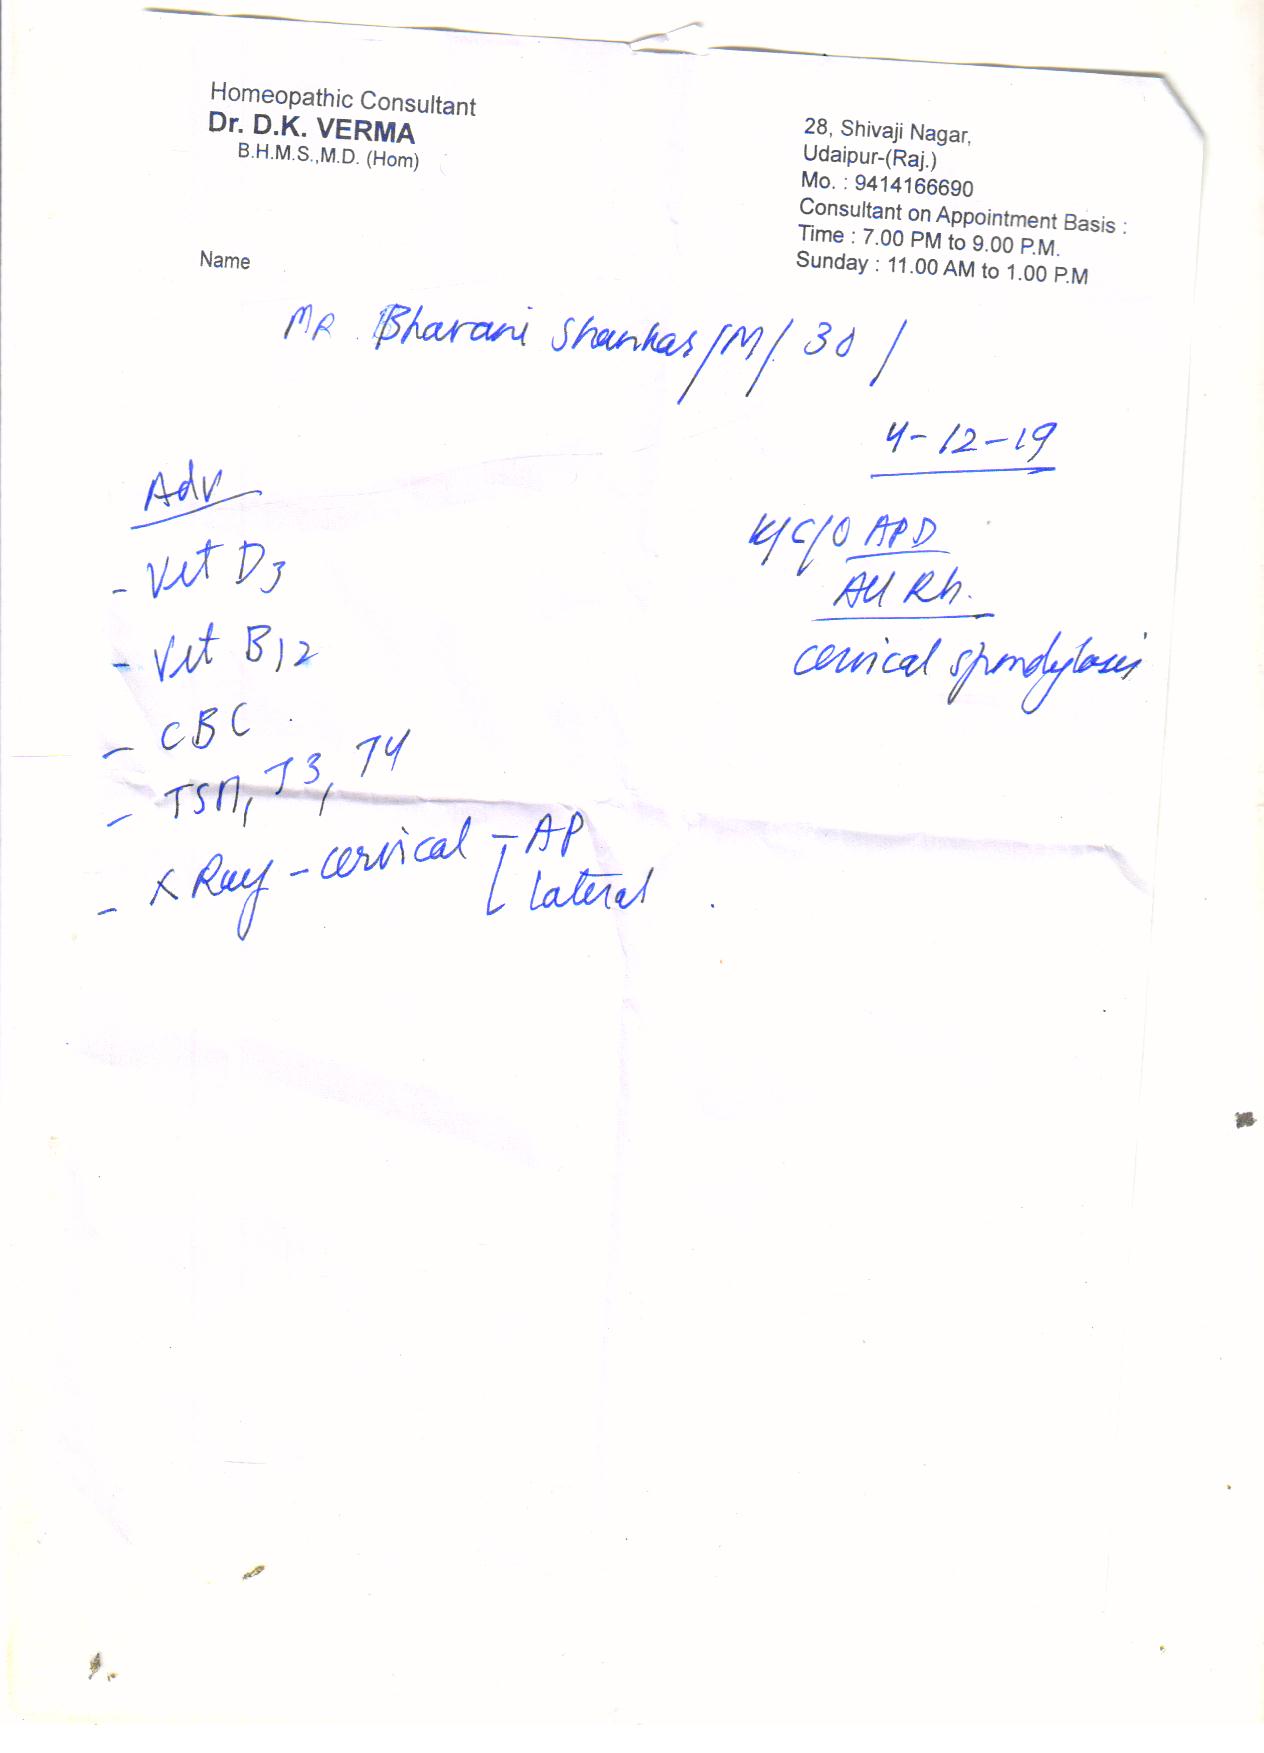 Homeopathic Consultant
Dr. D.K. VERMA
B.H.M.S.,M.D. (Hom)
28, Shivaji Nagar,
Udaipur-(Raj.)
Mo. : 9414166690
Consultant on Appointment Basis :
Time : 7.00 PM to 9.00 P.M.
Sunday : 11.00 AM to 1.00 P.M
Name
MR. Bhavani Shankar/M/
4-12-19
K/C/O APD
All Rh.
cervical spondylosis
Adv
- Vit D3
- Vit B12
- CBC
- TSH, T3, T4
- X Ray - cervical - AP
lateral